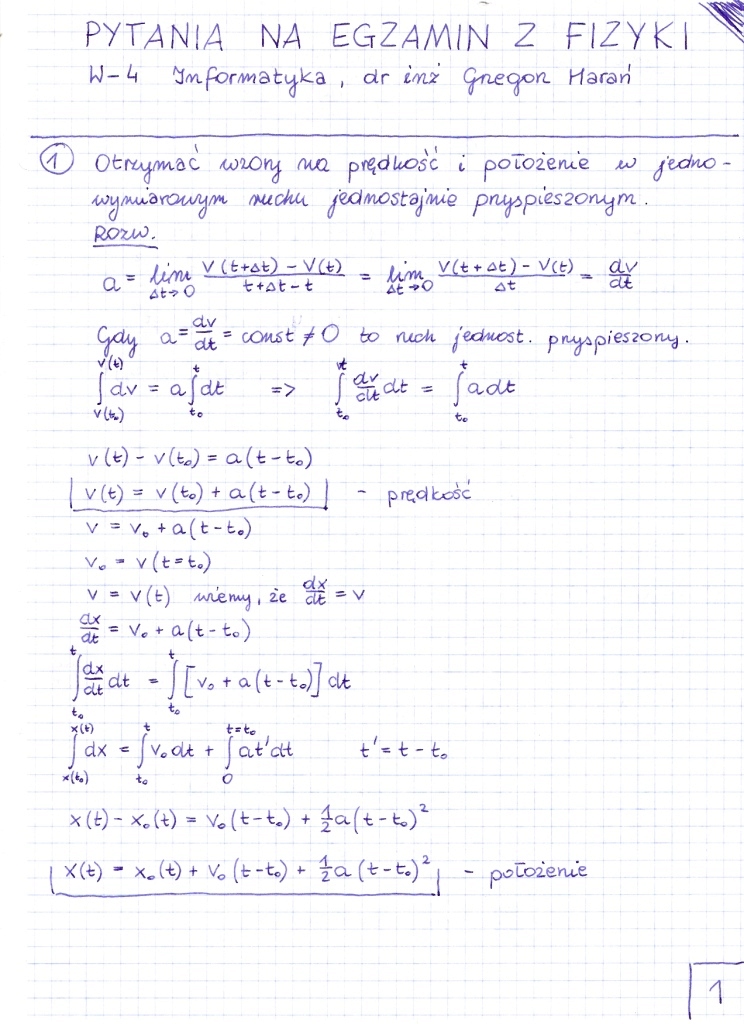 PYTANIA NA EGZAMIN Z FIZYKI
W-4 Informatyka, dr inż Gregor Harań
① Otrzymać wzory na prędkość i położenie w jedno-
wymiarowym ruchu jednostajnie przyspieszonym.
Rozw.
a = lim_{Δt→0} (V(t+Δt) - V(t))/(t+Δt-t) = lim_{Δt→0} (V(t+Δt) - V(t))/Δt = dv/dt
Gdy a = dv/dt = const ≠ 0 to ruch jednost. przyspieszony.
∫_{v(t₀)}^{v(t)} dv = a ∫_{t₀}^{t} dt => ∫_{t₀}^{t} dv/dt dt = ∫_{t₀}^{t} a dt
v(t) - v(t₀) = a(t-t₀)
v(t) = v(t₀) + a(t-t₀) - prędkość
v = v₀ + a(t-t₀)
v₀ = v(t=t₀)
v = v(t) wiemy, że dx/dt = v
dx/dt = v₀ + a(t-t₀)
∫_{t₀}^{t} dx/dt dt = ∫_{t₀}^{t} [v₀ + a(t-t₀)] dt
∫_{x(t₀)}^{x(t)} dx = ∫_{t₀}^{t} v₀ dt + ∫_{0}^{t=t₀} at'dt t' = t - t₀
x(t) - x₀(t) = v₀(t-t₀) + ½a(t-t₀)²
x(t) = x₀(t) + v₀(t-t₀) + ½a(t-t₀)² - położenie
1